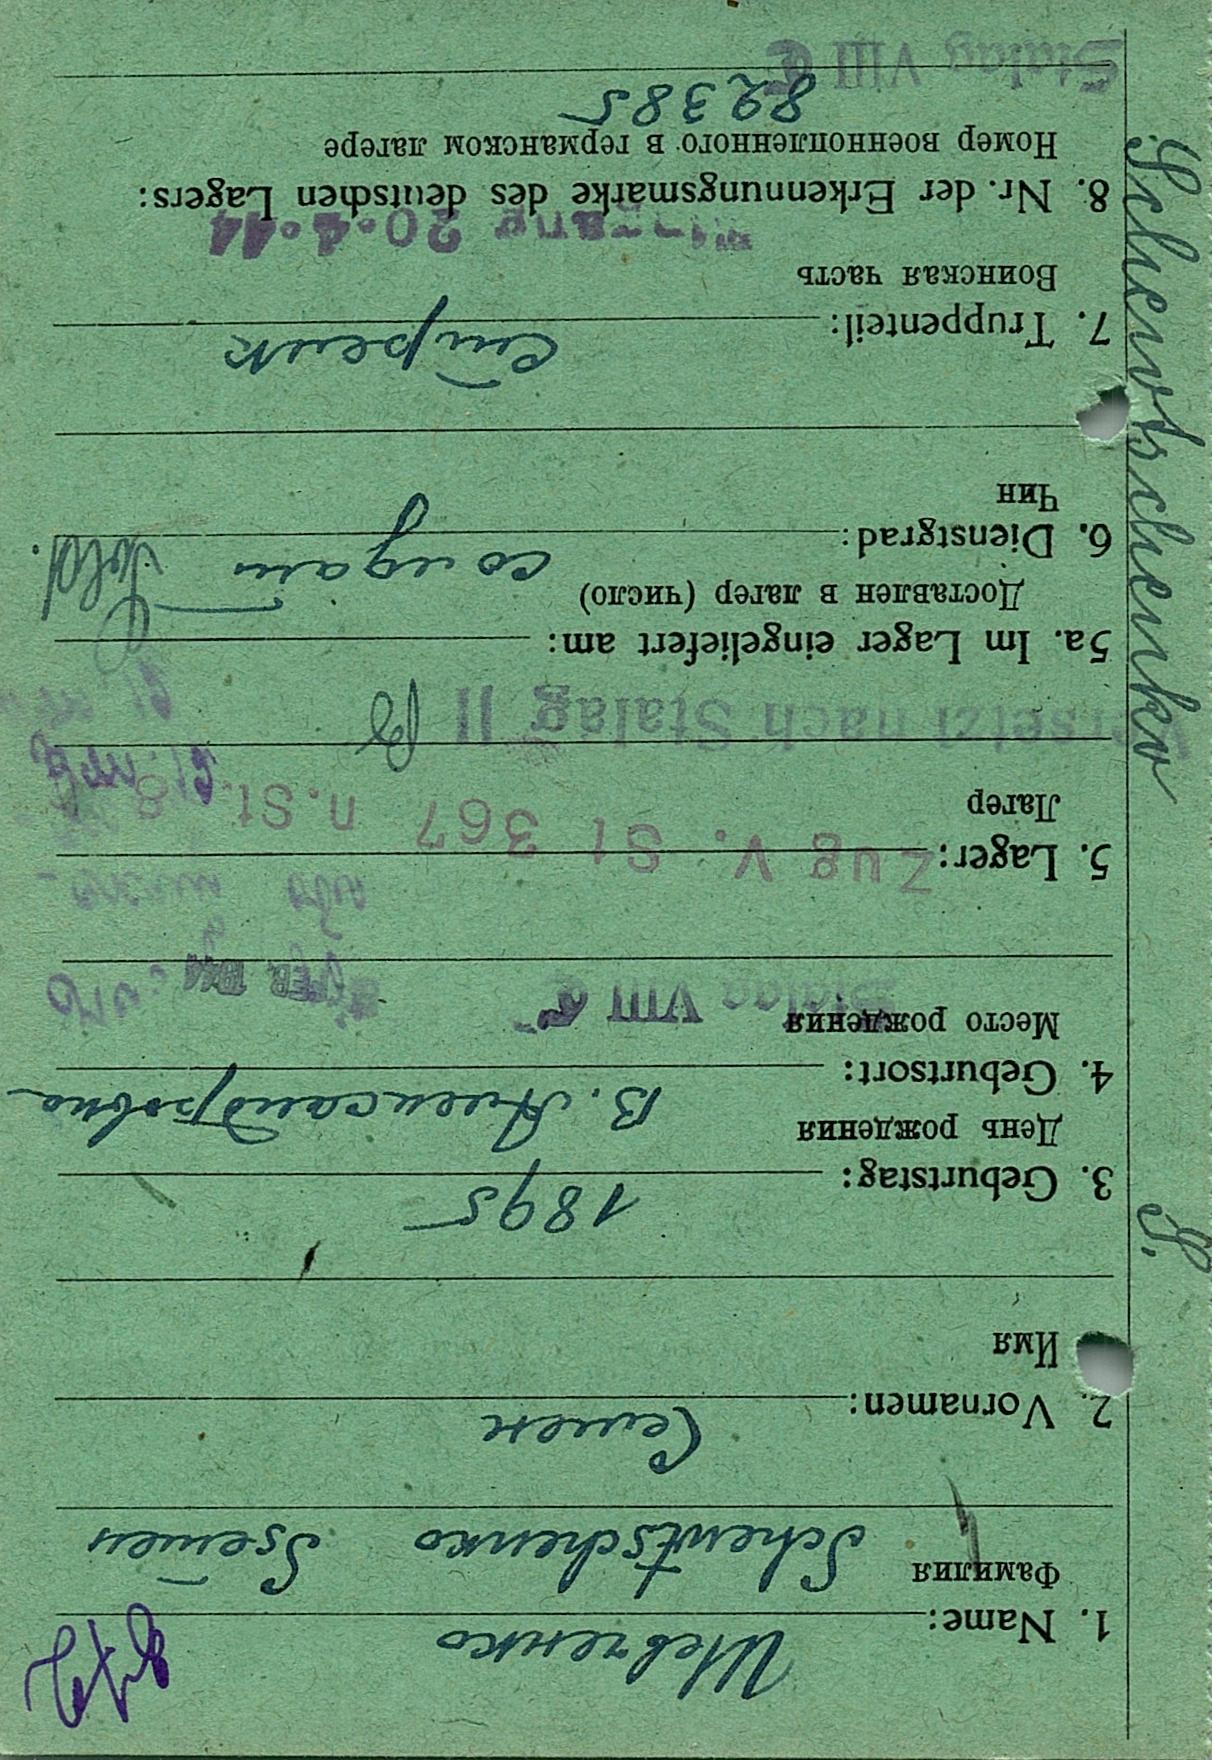 Schewtschenko S.
1. Name: Шевченко
Фамилия
Schewtschenko Ssemen
2. Vornamen: Семен
Имя
3. Geburtstag: 1895
День рождения
4. Geburtsort: В. Александровка
Место рождения
Stalag VIII C
FEB. 1944
5. Lager: Zug v. St 367 n. St. 8
Лагер
setzt nach Stalag II B
5a. Im Lager eingeliefert am:
Доставлен в лагер (число)
6. Dienstgrad: солдат Sold.
Чин
7. Truppenteil:
Воинская часть
20.4.44
8. Nr. der Erkennungsmarke des deutschen Lagers:
Номер военнопленного в германском лагере
82385
Stalag VIII C